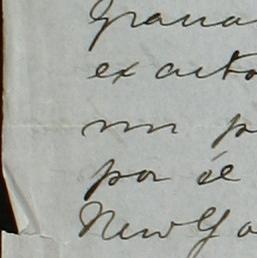 Grana
exacto
un p
por él
New Yo